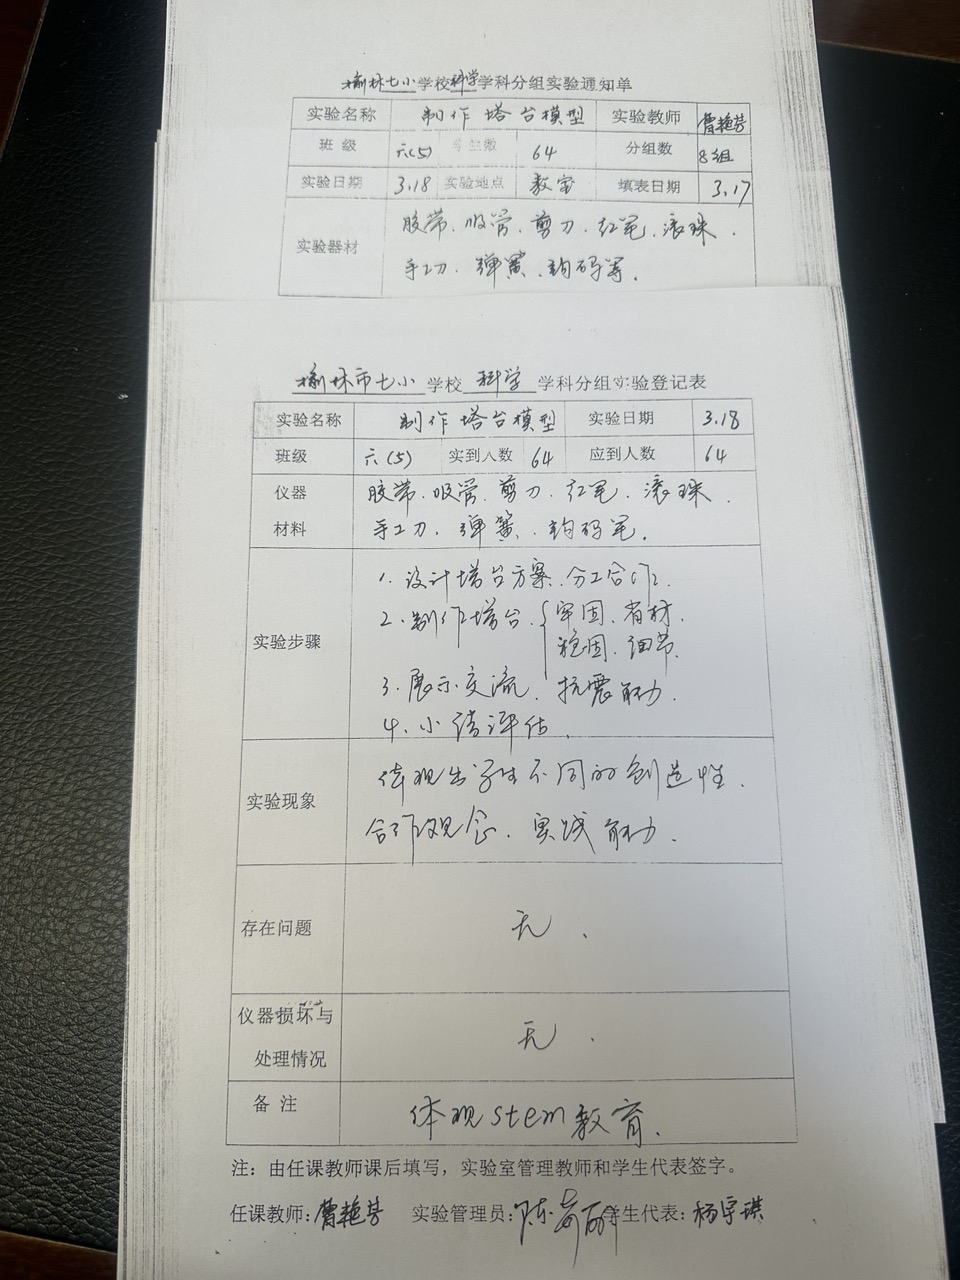 榆林七小学校科学学科分组实验通知单
实验名称 制作塔台模型 实验教师 曹艳芳
班 级 六(5) 学生数 64 分组数 8组
实验日期 3.18 实验地点 教室 填表日期 3.17
实验器材 胶带.吸管.剪刀.红笔.滚珠.
手工刀.弹簧.钩码等.
榆林市七小 学校 科学 学科分组实验登记表
实验名称 制作塔台模型 实验日期 3.18
班级 六(5) 实到人数 64 应到人数 64
仪器 胶带.吸管.剪刀.红笔.滚珠.
材料 手工刀.弹簧.钩码笔.
1.设计塔台方案.分工合作.
2.制作塔台.{牢固.省材.
实验步骤 稳固.细节.
3.展示交流.抗震能力.
4.小结评估.
实验现象 体现出学生不同的创造性.
合作观念.实践能力.
存在问题 无.
仪器损坏与
处理情况 无.
备 注 体现stem教育.
注：由任课教师课后填写，实验室管理教师和学生代表签字。
任课教师:曹艳芳 实验管理员:陈 学生代表:杨宇琪